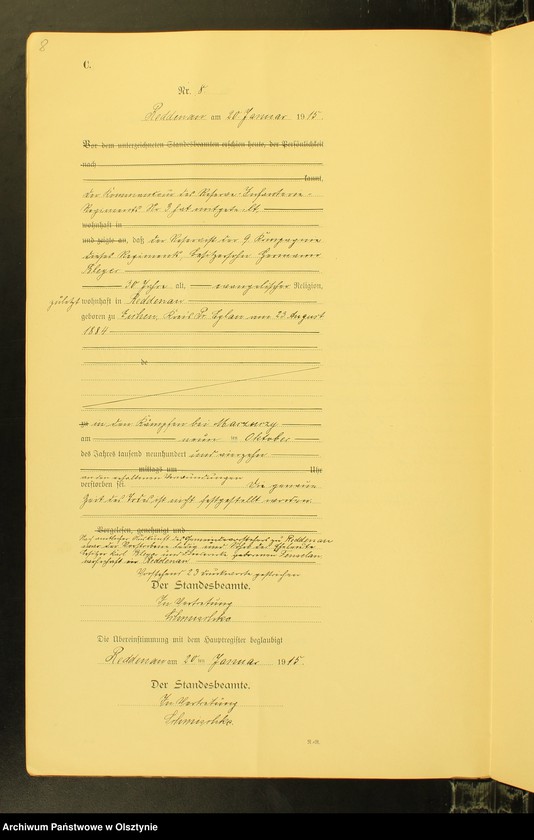 8
C.
Nr. 8
Reddenau am 20 Januar 1915.
Vor dem unterzeichneten Standesbeamten erschien heute, der Persönlichkeit
nach
kannt,
der Kommandeur des Reserve-Infanterie-
Regiments Nr 3 hat mitgeteilt
wohnhaft in
und zeigte an, daß der Reservist der 9. Kompagnie
dieses Regiments, Besitzersohn Hermann
30 Jahre alt, evangelischer Religion,
zuletzt wohnhaft in Reddenau
geboren zu Eichen, Kreis Pr. Eylau am 23 August
1884
de
in den Kämpfen bei
am neun ten Oktober
des Jahres tausend neunhundert und vierzehn
mittags um Uhr
an den erhaltenen Verwundungen
verstorben sei. Die genaue
Zeit des Todes ist nicht festgestellt worden.
Vorgelesen, genehmigt und
Nach amtlicher Auskunft des Gemeindevorstehers zu Reddenau
war der Verstorbene ledig und Sohn der Eheleute
Besitzer Karl und geborenen
wohnhaft in Reddenau
Vorstehend 23 Druckworte gestrichen
Der Standesbeamte.
In Vertretung
Die Übereinstimmung mit dem Hauptregister beglaubigt
Reddenau am 20 ten Januar 1915.
Der Standesbeamte.
In Vertretung
Archiwum Państwowe w Olsztynie